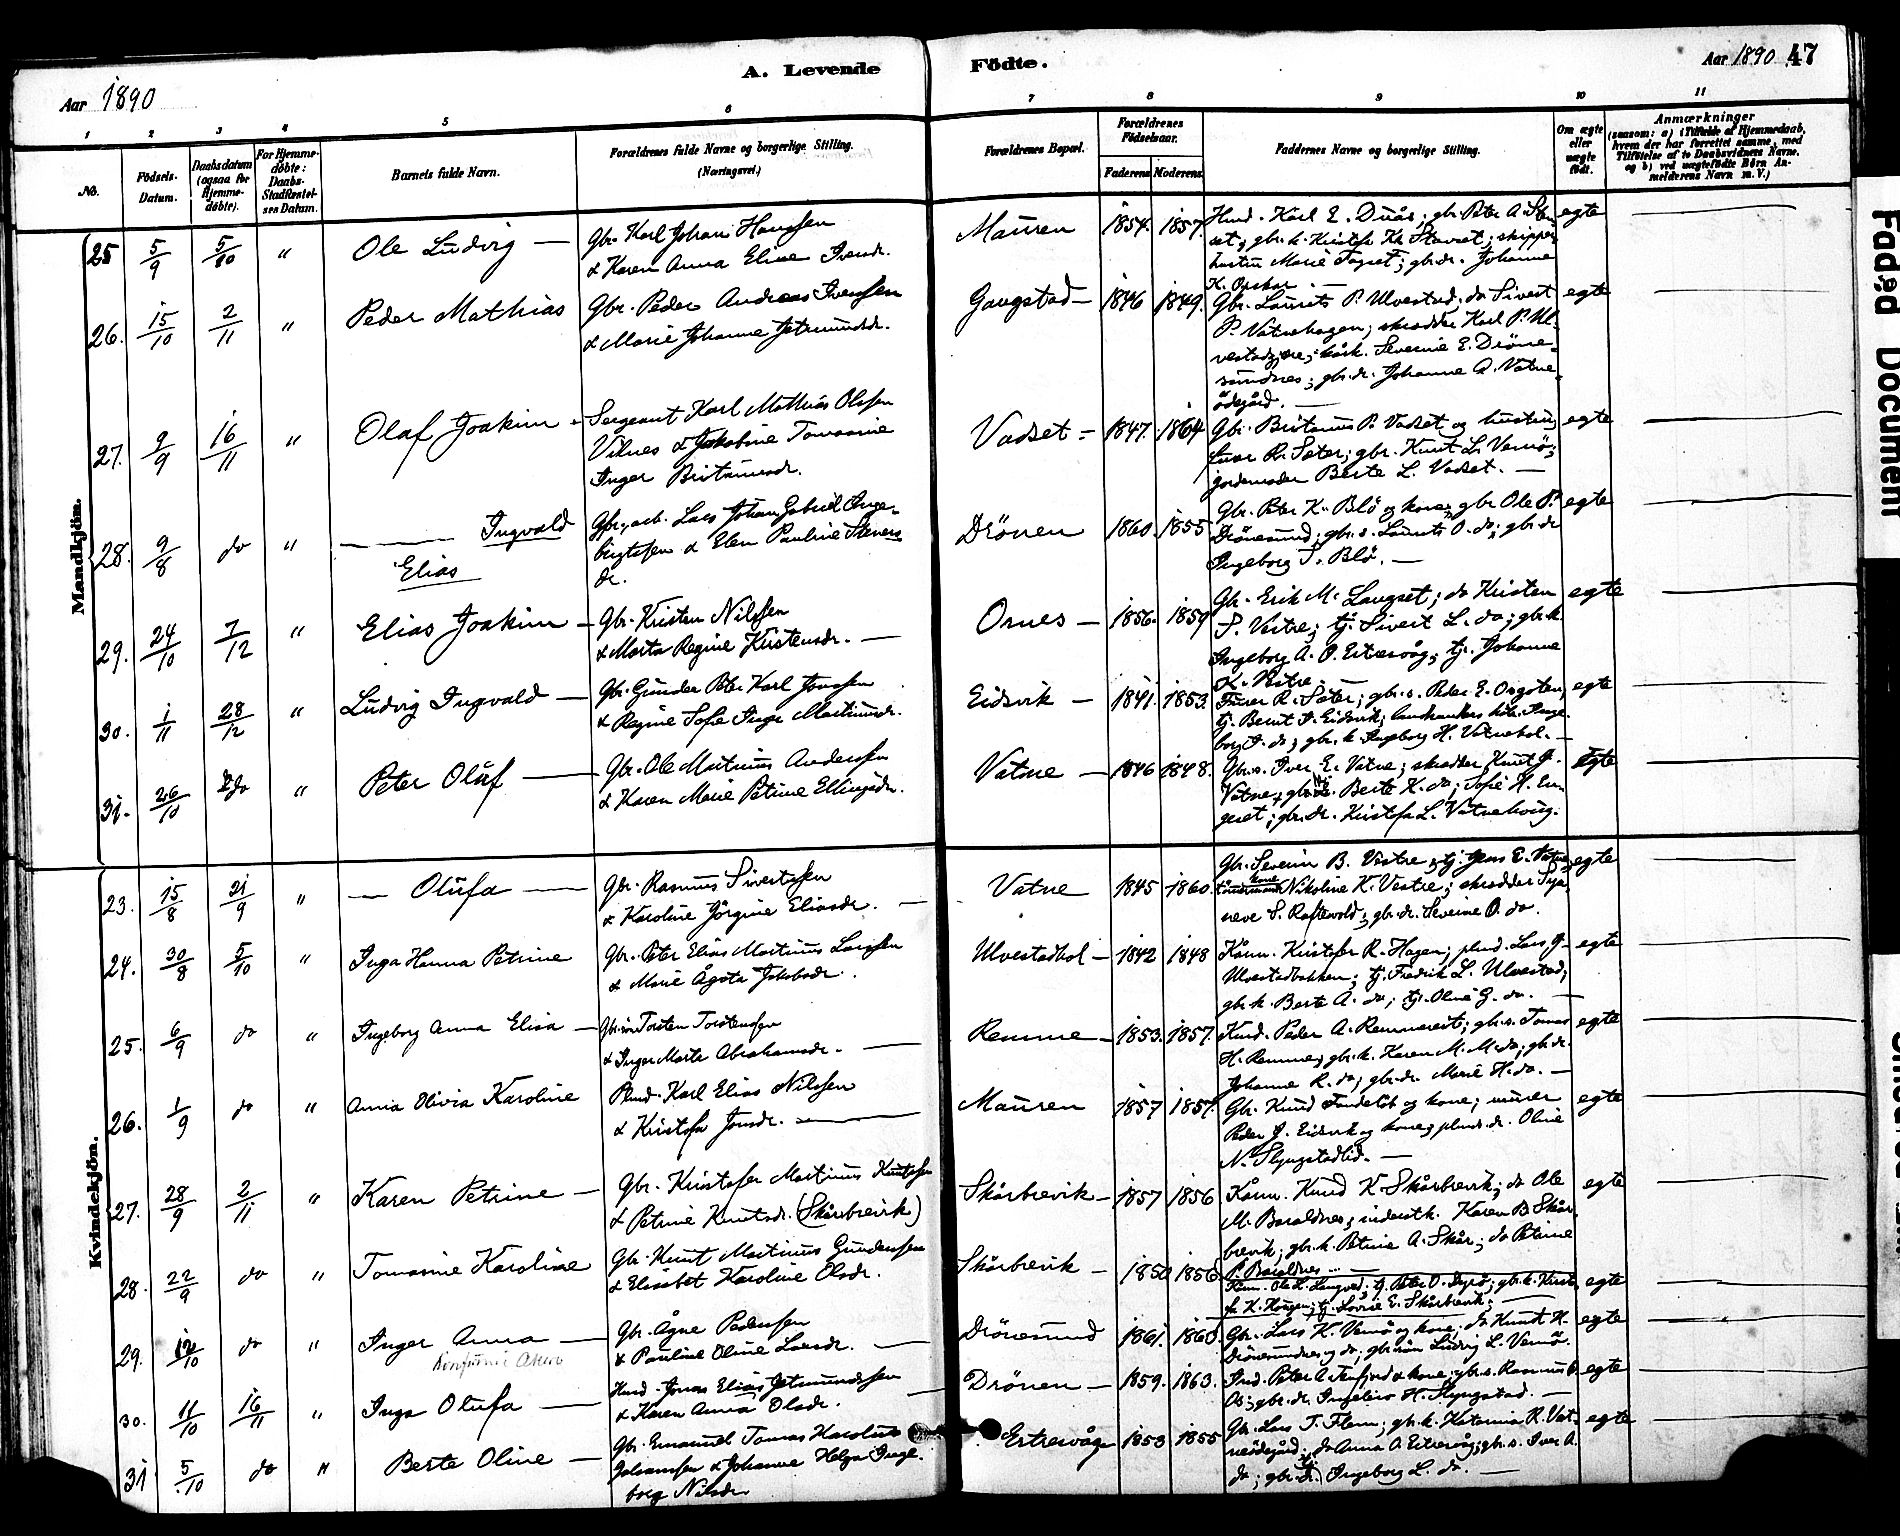 Aar 1890
A. Levende
Födte.
Aar 1890 47
1 2 3 4 5 6 7 8 9 10 11
No.
Födsels-
Datum.
Daabsdatum
(ogsaa for
Hjemme-
döbte).
For Hjemme-
döbte:
Daabs-
Stadfæstel-
ses Datum.
Barnets fulde Navn.
Forældrenes fulde Navne og borgerlige Stilling.
(Næringsvei.)
Forældrenes Bopæl.
Forældrenes
Födselsaar.
Faderens Moderens
Faddernes Navne og borgerlige Stilling.
Om ægte
eller
uægte
födt.
Anmærkninger
(saasom: a) i Tilfælde af Hjemmedaab,
hvem der har forrettet samme, med
Tilföielse af to Daabsvidners Navne,
og b) ved uægtefödte Börn An-
melderens Navn m. V.)
Mandkjön.
25 5/9 5/10 " Ole Ludvig — Gbr. Karl Johan Hansen
& Karen Anna Eline Iversdr.
Mauren 1854. 1857. egte
26. 15/10 2/11 " Peder Mathias Gbr. Peder Andreas Iversen
& Marie Johanne Jetmundsdr.
Gangstad — 1846 1849. Gbr. Laurits P. Ulvestad; do Sivert
P. Vatnehagen; skrædder Karl P. Ul-
sundnes; gbr.dr. Johanne A. Vatne-
ødegård. — egte
27. 9/9 16/11 " Olaf Joakim - Sergeant Karl Mathias Olsen
Vilnes & Jakobine Tomasine
Inger Britanusdr.
Vadset - 1847. 1864 Gbr. Britanus P. Vadset og hustru;
Iver R. Sæter; gbr. Knut L. Vemø;
jordemoder Berte L. Vadset. — egte
28. 9/8 do " — Ingvald
Elias
Gbr, arb. Lars Johan Gabriel Inge-
brigtsen & Elen Pauline Steners
dr.
Drönen 1860. 1855 Gbr. Peter K. Blø og kone; gbr Ole P.
Drönesund; gbr.s. Laurits O. do; gbr.dr
Ingeborg T. Blø. — egte
29. 24/10 7/12 " Elias Joakim — Gbr. Kristen Nilssen
& Marta Regine Kristensdr. —
Ornes — 1856. 1859 Gbr. Erik M. Langset; do Kristen
S. Vestre; tj. Sivert L. do; gbr.k.
Ingeborg A. O. Estrevåg; tj. Johanne
K. Vestre — egte
30. 1/11 28/12 " Ludvig Ingvald — Gbr. Gunder Peter Karl Jonssen
& Regine Sofie Inger Martinusdr.
Eidsvik — 1841. 1853. Iver R. Sæter; gbr.s. Peder E.
tj. Bernt Eidsvik;
gbr.k. Ingeborg H. Vatnehol. — egte
31. 26/10 do " Peter Oluf — Gbr. Ole Martinus Andersen
& Karen Marie Petrine Ellingsdr.
Vatne — 1846 1848. Gbr.s. Iver E. Vatne; skrædder Knut J.
Vatne; Berte K. do; Sofie H. En-
geset; gbr.dr. Kristofa L. Vatnehaug. egte
Kvindekjön.
23. 15/8 21/9 " — Olufa — Gbr. Rasmus Sivertsen
& Karoline Jörgine Eliasdr. —
Vatne 1845 1860. Gbr. Severin B. Vestre; tj. Jens E. Vatne;
kone Nikoline K. Vestre; skrædder Syn-
neve S. Roftevold; gbr.dr. Severine O. do. egte
24. 30/8 5/10 " Inga Hanna Petrine Gbr. Peter Elias Martinus Larsen
& Marie Ågota Jakobsdr.
Ulvestadhol — 1842 1848 Kårm. Kristofer R. Hagen; plmd. Lars J.
Ulvestadbakken; tj. Fredrik L. Ulvestad;
gbr.k. Berte A. do; tj. Oline G. do. — egte
25. 6/9 do " Ingeborg Anna Elisa — Torsten Torstensen
& Inger Marte Abrahamsdr. —
Remme — 1853. 1857. Peder A. Remmereit; gbr.s. Tomas
H. Remme; gbr.k. Karen M. M. do; gbr.dr.
Johanne R. do; gbr.dr. Marie H. do. — egte
26. 1/9 do " Anna Olivia Karoline Plmd. Karl Elias Nilssen
& Kristofa Jonsdr. —
Mauren 1857 1857. Gbr. Knud og kone; murer
Peder J. Eidsvik og kone; plmds.dr. Oline
N. Slyngstadlid. — egte
27. 28/9 2/11 " Karen Petrine — Gbr. Kristofer Martinus Knutsen
& Petrine Knutsdr. (Skårbrevik)
Skårbrevik — 1857 1856 Kårm. Knud K. Skårbrevik; do Ole
M. Baraldnes; inderstk. Karen B. Skår-
brevik; gbr.k. Petrine A. Skår; do Petrine
P. Baraldnes. — egte
28. 22/9 do " Tomasine Karoline Gbr. Knut Martinus Gundersen
& Elisabet Karoline Olsdr.
Skårbrevik — 1850 1856 Kårm. Ole L. Langved; tj. Peter O. Dyrø; gbr.k. Kristo-
fa K. Haugen; tj. Lovise E. Skårbrevik; — egte
29. 12/10 do " Inger Anna — Gbr. Ågne Pedersen
& Pauline Oline Larsdr. —
Drönesund 1861. 1865. Gbr. Lars K. Vemø og kone; do Knut H.
Drönesundnes og do; Ludvig L. Vemø. egte
30. 11/10 16/11 " Inga Olufa — Husmd. Jonas Elias Jetmundsen
& Karen Anna Olsdr. —
Drönen — 1859. 1863. Peter A. Tenfjord & kone; gbr.s. Rasmus
gbr.dr. H. Slyngstad. — egte
31 5/10 do " Berte Oline — Gbr. Emanuel Tomas Karolius
Johannesen & Johanne Helga Inge-
borg Nilsdr
Estrevåg 1853 1855 Gbr. Lars T. Flem; gbr.k. Katarina R. Vat-
neödegård; do Anna A. Estrevåg; gbr.s. Iver A.
do; Ingeborg L. do. — egte
Faded Document